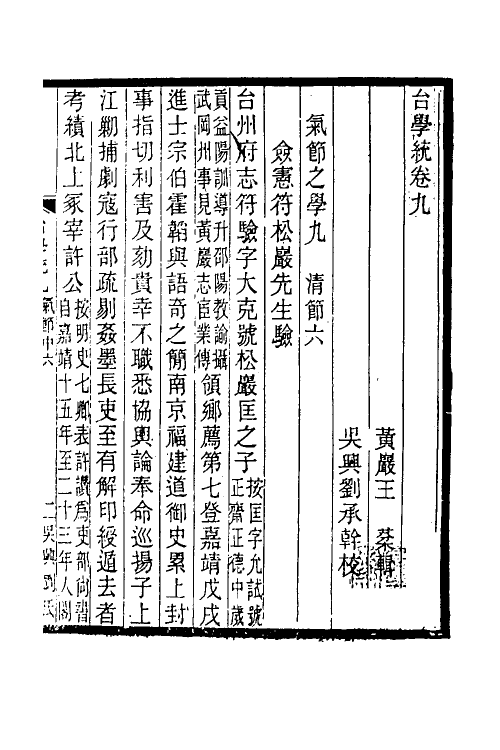 台學統卷九
黃巖王棻輯
吳興劉承幹校
氣節之學九　清節六
僉憲符松巖先生驗
台州府志符驗字大克號松巖匡之子按匡字允試號
正齋正德中歲
貢益陽訓導升邵陽教諭攝
武岡州事見黃巖志宦業傳領鄉薦第七登嘉靖戊戌
進士宗伯霍韜與語奇之簡南京福建道御史累上封
事指切利害及劾貴幸不職悉協輿論奉命巡揚子上
江勦捕劇寇行部疏剔姦墨長吏至有解印綬遁去者
考績北上冢宰許公按明史七卿表許讚爲吏部尚書
自嘉靖十五年至二十三年入閣
台學統九 氣節中六
二 吳興劉氏